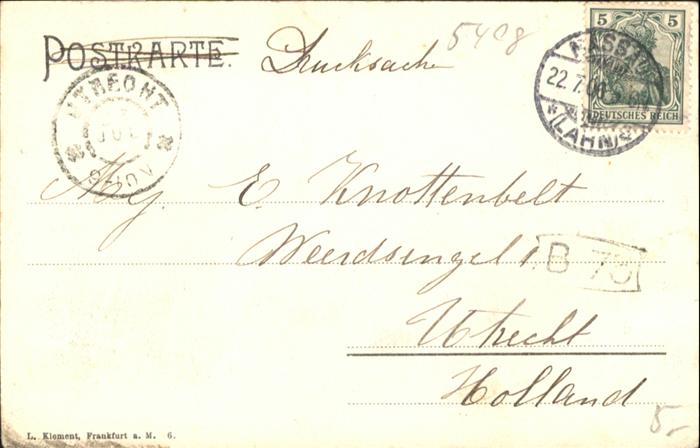 5408
POSTKARTE. Drucksache
5 5
DEUTSCHES REICH
NASSAU
22.7.06
* (LAHN) *
UTRECHT
Mej. E. Knottenbelt
Weerdsingel
B 73
Utrecht
Holland
L. Klement, Frankfurt a. M. 6.
5.-